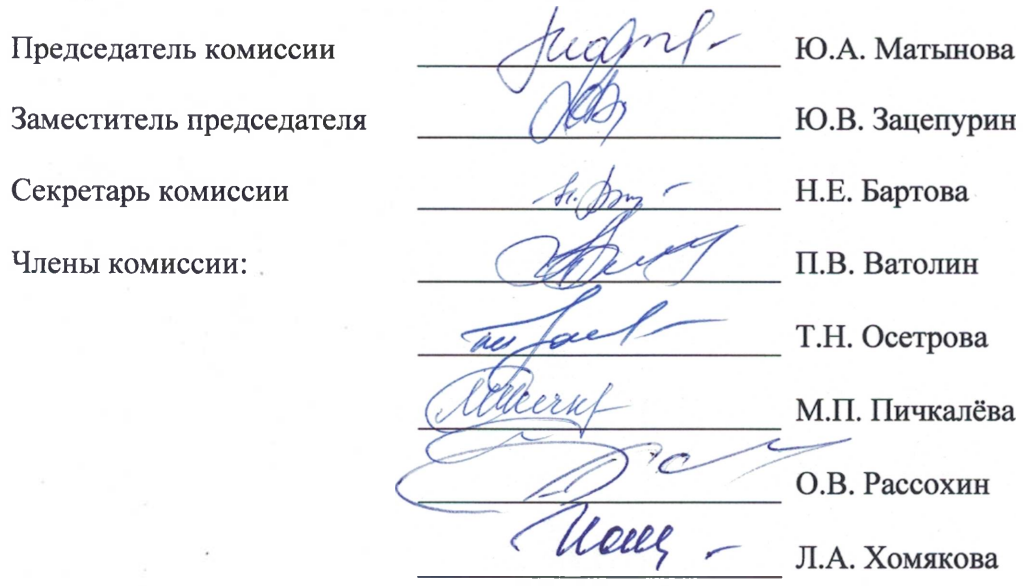 Председатель комиссии Ю.А. Матынова
Заместитель председателя Ю.В. Зацепурин
Секретарь комиссии Н.Е. Бартова
Члены комиссии: П.В. Ватолин
Т.Н. Осетрова
М.П. Пичкалёва
О.В. Рассохин
Л.А. Хомякова